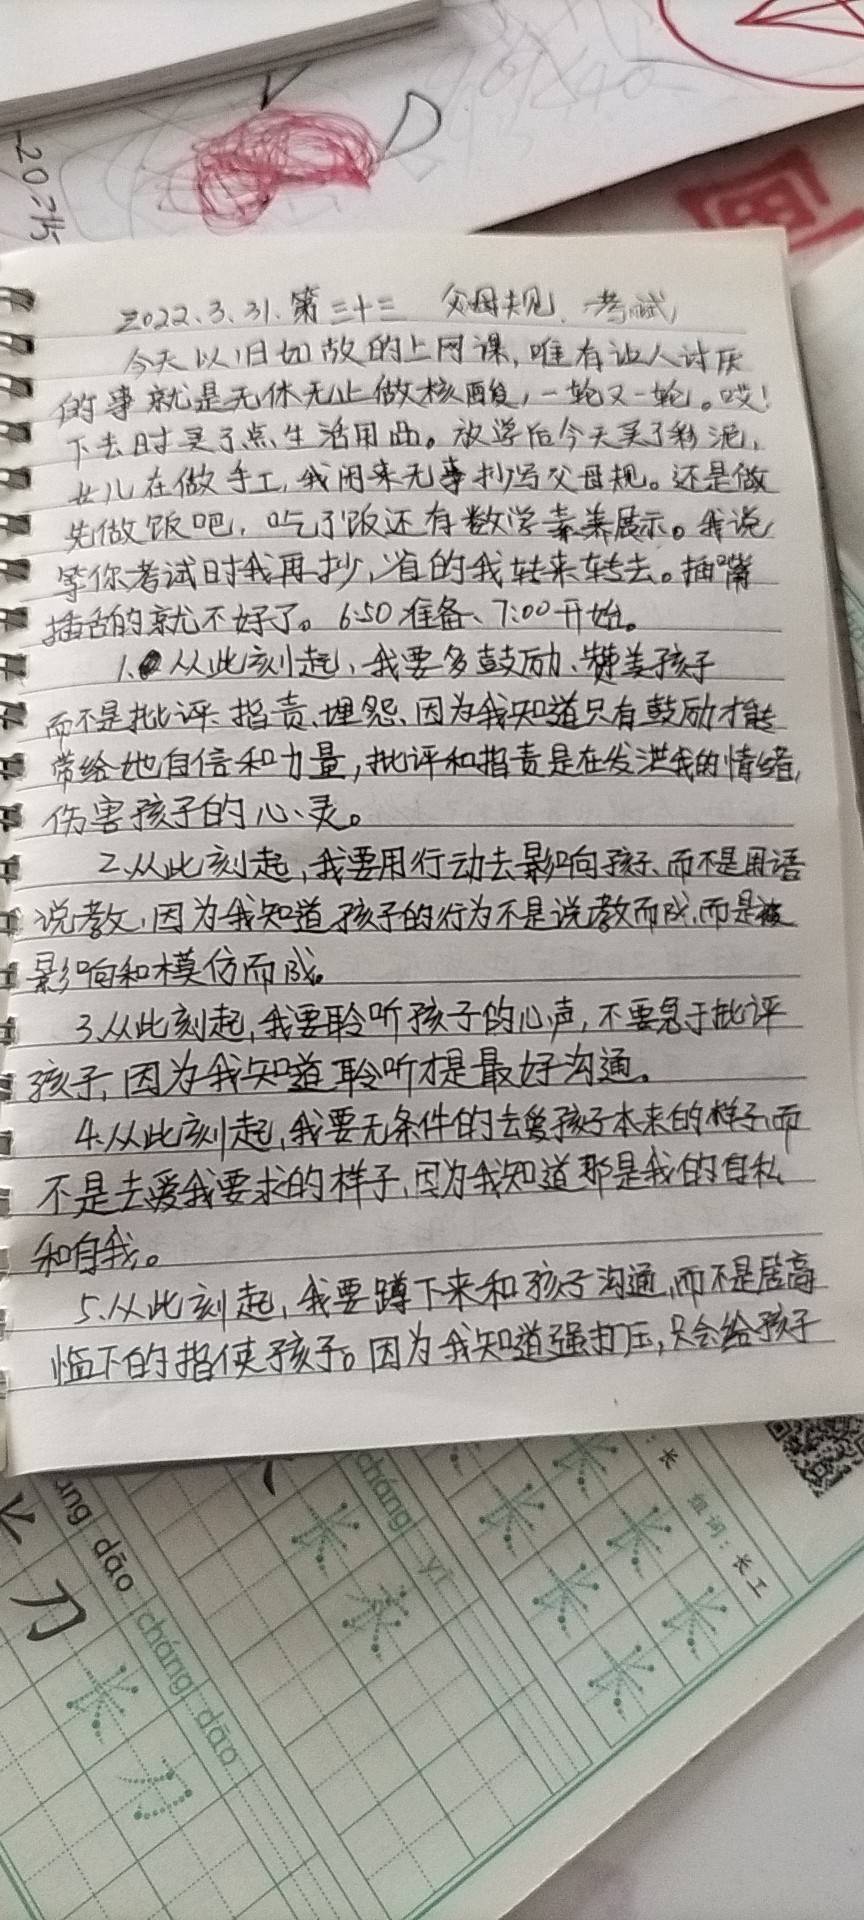 2022.3.31.第三十三 父母规.考试,
今天以旧如故的上网课,唯有让人讨厌
的事就是无休无止做核酸,一轮又一轮。哎!
下去时买了点生活用品。放学后今天买了彩泥,
女儿在做手工,我闲来无事抄写父母规。还是做
先做饭吧,吃了饭还有数学素养展示。我说
等你考试时我再抄,省的我转来转去。插嘴
插舌的就不好了。6:50准备、7:00开始。
1.从此刻起,我要多鼓励、赞美孩子
而不是批评、指责、埋怨、因为我知道只有鼓励才能
带给她自信和力量,批评和指责是在发泄我的情绪,
伤害孩子的心灵。
2.从此刻起,我要用行动去影响孩子、而不是用语
说教,因为我知道孩子的行为不是说教而成,而是被
影响和模仿而成。
3.从此刻起,我要聆听孩子的心声,不要急于批评
孩子,因为我知道聆听才是最好沟通。
4.从此刻起,我要无条件的去爱孩子本来的样子,而
不是去爱我要求的样子,因为我知道那是我的自私
和自我。
5.从此刻起,我要蹲下来和孩子沟通,而不是居高
临下的指使孩子。因为我知道强打压,只会给孩子
cháng yī
长 组词:长工
dāo
cháng dāo
刀
长
刀